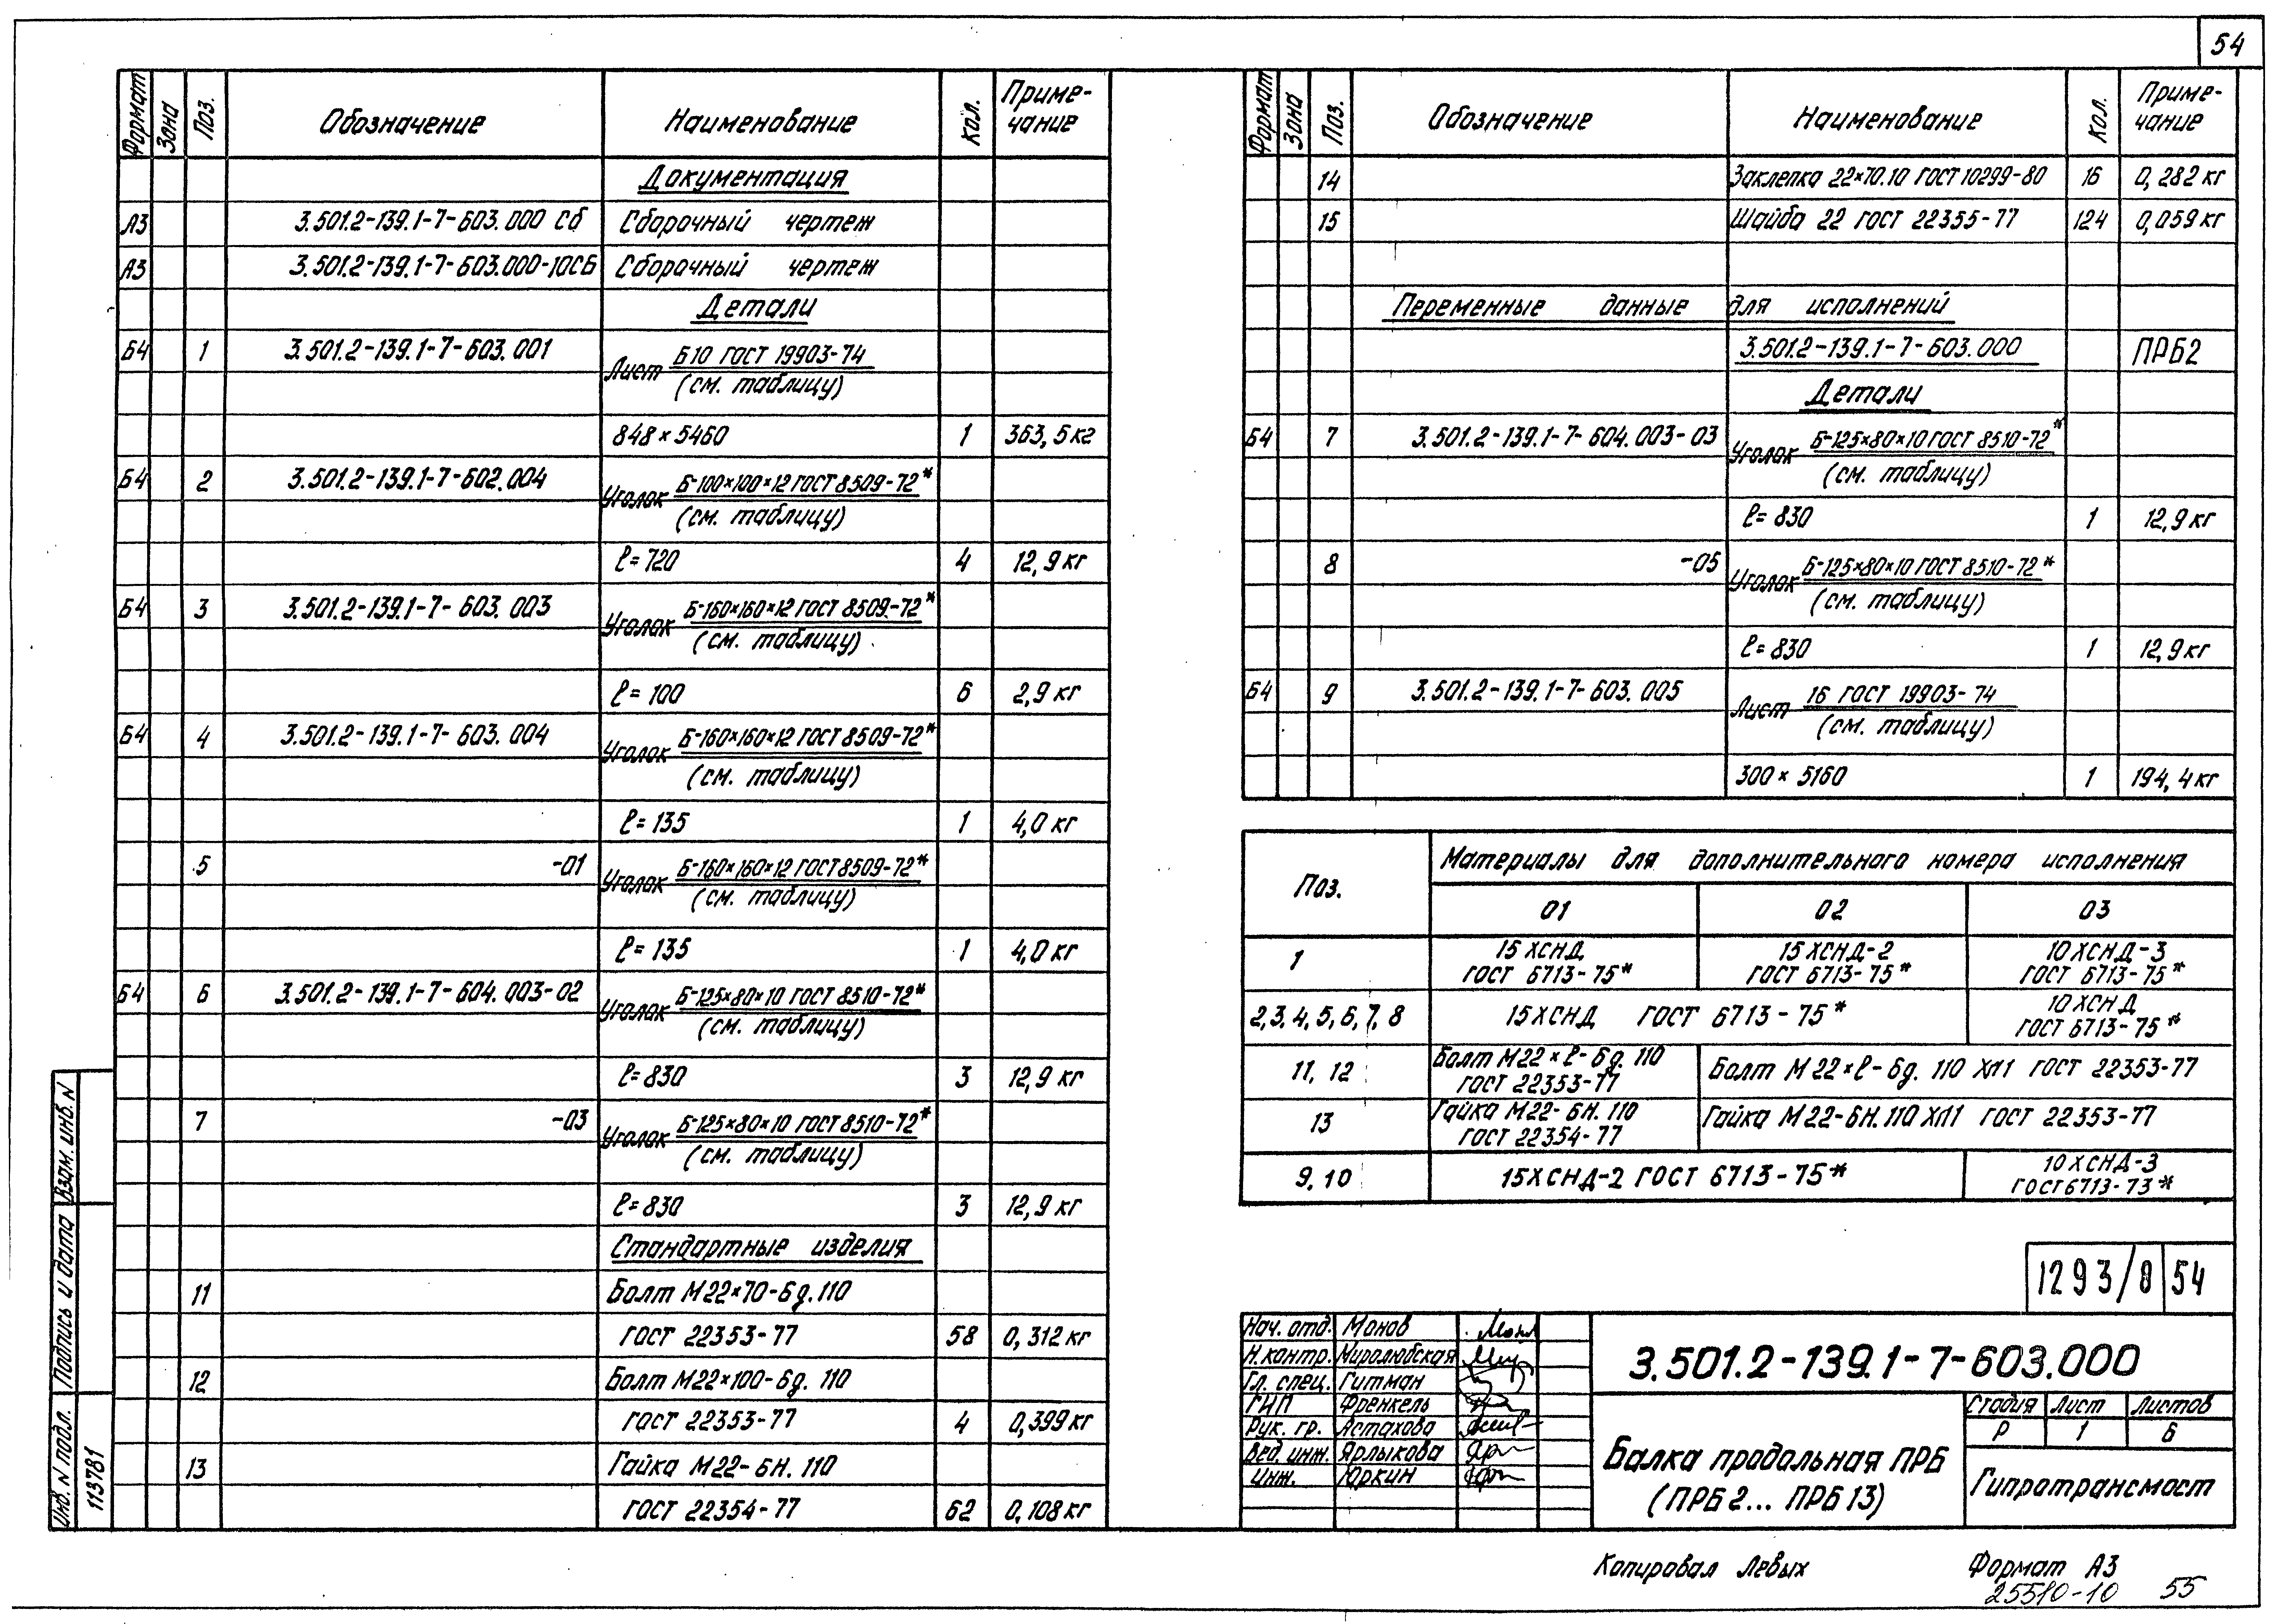 54
Формат Зона Поз. Обозначение Наименование Кол. Приме-чание
Документация
А3 3.501.2-139.1-7-603.000 Сб Сборочный чертеж
А3 3.501.2-139.1-7-603.000-10СБ Сборочный чертеж
Детали
Б4 1 3.501.2-139.1-7-603.001 Лист Б10 ГОСТ 19903-74
(см. таблицу)
848×5460 1 363,5 кг
Б4 2 3.501.2-139.1-7-602.004 Уголок Б-100×100×12 ГОСТ 8509-72*
(см. таблицу)
ℓ=720 4 12,9 кг
Б4 3 3.501.2-139.1-7-603.003 Уголок Б-160×160×12 ГОСТ 8509-72*
(см. таблицу)
ℓ=100 6 2,9 кг
Б4 4 3.501.2-139.1-7-603.004 Уголок Б-160×160×12 ГОСТ 8509-72*
(см. таблицу)
ℓ=135 1 4,0 кг
5 -01 Уголок Б-160×160×12 ГОСТ 8509-72*
(см. таблицу)
ℓ=135 1 4,0 кг
Б4 6 3.501.2-139.1-7-604.003-02 Уголок Б-125×80×10 ГОСТ 8510-72*
(см. таблицу)
ℓ=830 3 12,9 кг
7 -03 Уголок Б-125×80×10 ГОСТ 8510-72*
(см. таблицу)
ℓ=830 3 12,9 кг
Стандартные изделия
11 Болт М22×70-6g.110
ГОСТ 22353-77 58 0,312 кг
12 Болт М22×100-6g.110
ГОСТ 22353-77 4 0,399 кг
13 Гайка М22-6Н.110
ГОСТ 22354-77 62 0,108 кг
Формат Зона Поз. Обозначение Наименование Кол. Приме-чание
14 Заклепка 22×70.10 ГОСТ 10299-80 16 0,282 кг
15 Шайба 22 ГОСТ 22355-77 124 0,059 кг
Переменные данные для исполнений
3.501.2-139.1-7-603.000 ПРБ2
Детали
Б4 7 3.501.2-139.1-7-604.003-03 Уголок Б-125×80×10 ГОСТ 8510-72*
(см. таблицу)
ℓ=830 1 12,9 кг
8 -05 Уголок Б-125×80×10 ГОСТ 8510-72*
(см. таблицу)
ℓ=830 1 12,9 кг
Б4 9 3.501.2-139.1-7-603.005 Лист 16 ГОСТ 19903-74
(см. таблицу)
300×5160 1 194,4 кг
Поз. Материалы для дополнительного номера исполнения
01 02 03
1 15ХСНД ГОСТ 6713-75* 15ХСНД-2 ГОСТ 6713-75* 10ХСНД-3 ГОСТ 6713-75*
2,3,4,5,6,7,8 15ХСНД ГОСТ 6713-75* 10ХСНД ГОСТ 6713-75*
11, 12 Болт М22×ℓ-6g.110 ГОСТ 22353-77 Болт М22×ℓ-6g.110 ХЛ1 ГОСТ 22353-77
13 Гайка М22-6Н.110 ГОСТ 22354-77 Гайка М22-6Н.110 ХЛ1 ГОСТ 22353-77
9,10 15ХСНД-2 ГОСТ 6713-75* 10ХСНД-3 ГОСТ 6713-73*
1293/8 54
Нач. отд. Монов
Н.контр. Миролюбская
Гл. спец. Гитман
ГИП Френкель
Рук. гр. Астахова
Вед. инж. Ярлыкова
Инж. Юркин
3.501.2-139.1-7-603.000
Балка продольная ПРБ
(ПРБ2... ПРБ13)
Стадия Лист Листов
Р 1 6
Гипротрансмост
Взам. инв. N
Подпись и дата
Инв. N подл. 113781
Копировал Левых Формат А3
25510-10 55